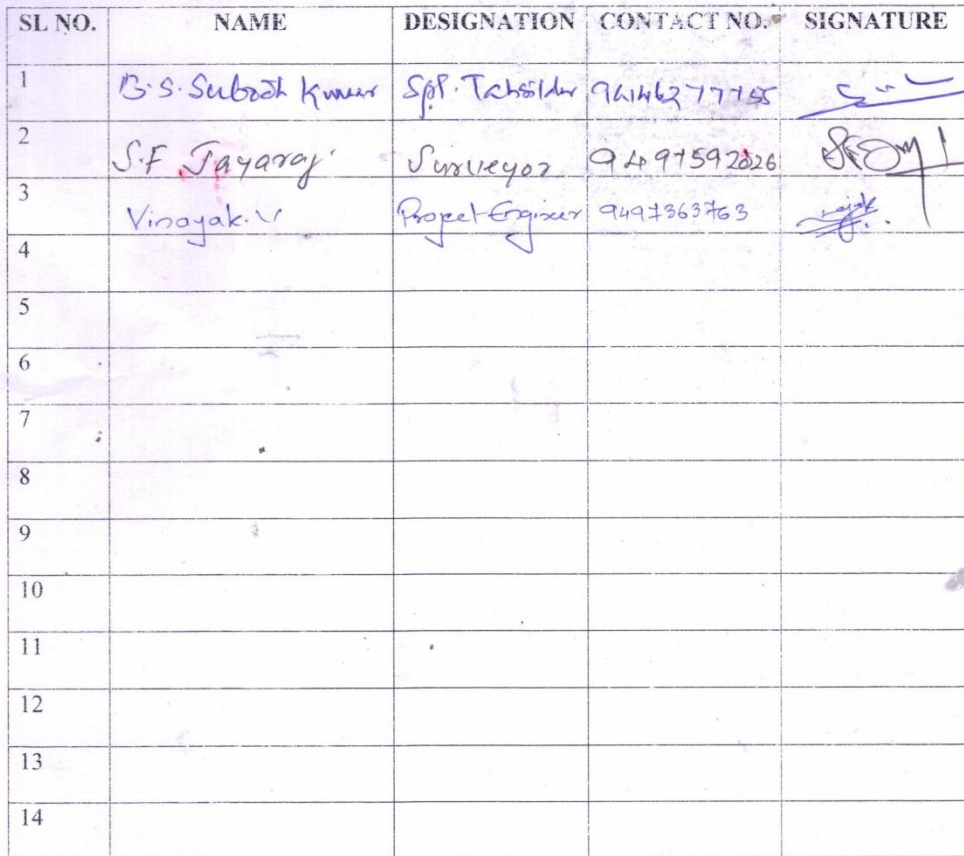 SL NO. NAME DESIGNATION CONTACT NO. SIGNATURE
1 B.S. Subodh Kumar Spl. Tahsildar
2 S.F Jayaraj Surveyor 9497592026
3 Vinayak. V Project Engineer 9497363763
4
5
6
7
8
9
10
11
12
13
14